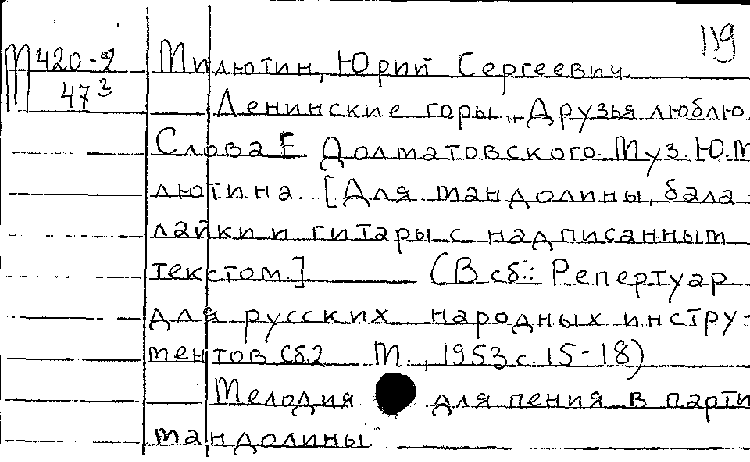 119
М420-2 Милютин, Юрий Сергеевич
47³ Ленинские горы „Друзья люблю
Слова Е Долматовского. Муз. Ю. М
лютина. [Для мандолины, бала-
лайки и гитары с надписанным
текстом.] (В сб.: Репертуар
для русских народных инстру-
ментов Сб.2 М., 1953 с. 15-18)
Мелодия для пения в парти
мандолины